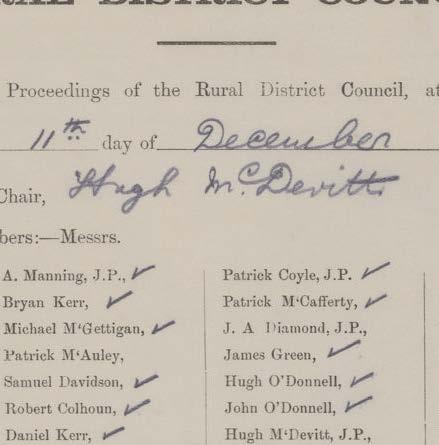 RAL DISTRICT COUNC
Proceedings of the Rural District Council, at
11th day of December
Chair, Hugh McDevitt
bers:—Messrs.
A. Manning, J.P., ✓
Bryan Kerr, ✓
Michael M‘Gettigan, ✓
Patrick M‘Auley,
Samuel Davidson, ✓
Robert Colhoun, ✓
Daniel Kerr, ✓
Patrick Coyle, J.P. ✓
Patrick M‘Cafferty, ✓
J. A Diamond, J.P.,
James Green, ✓
Hugh O’Donnell, ✓
John O’Donnell, ✓
Hugh M‘Devitt, J.P.,